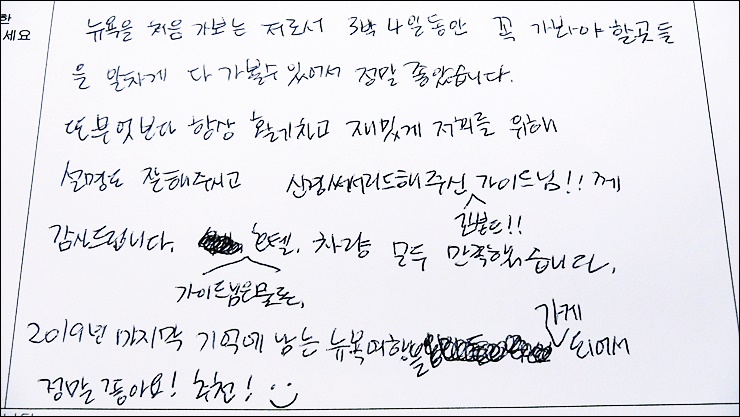 한
세요
뉴욕을 처음 가보는 저로서 3박 4일동안 꼭 가봐야 할곳들
을 알차게 다 가볼수 있어서 정말 좋았습니다.
또 무엇보다 항상 활기차고 재밌게 저희를 위해
설명도 잘해주시고 신경써서리드해주신 가이드님!! 께
감사드립니다. 호텔, 차량 모두 만족했습니다.
가이드님은물론,
2019년 마지막 기억에 남는 뉴욕여행 되어서
가게
정말 좋아요! 추천! :)